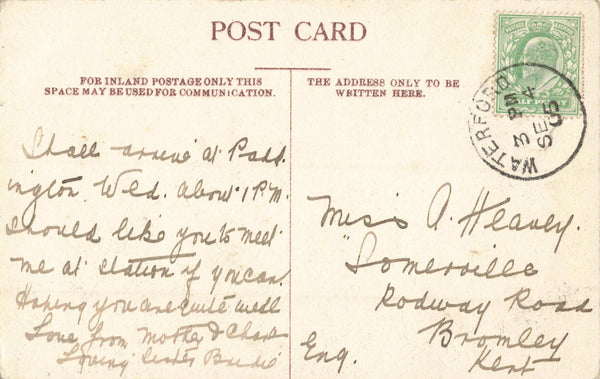 POST CARD
FOR INLAND POSTAGE ONLY THIS
SPACE MAY BE USED FOR COMMUNICATION.
THE ADDRESS ONLY TO BE
WRITTEN HERE.
HALF PENNY
WATERFORD
3 PM
SE 4
05
Shall arrive at Padd
ington Wed. about 1 P.M.
Should like you to meet
me at station if you can.
Hoping you are quite well
Love from Mother & Chas
Loving Sister Birdie
Miss A. Heavey.
"Somerville
Rodway Road
Bromley
Kent
Eng.